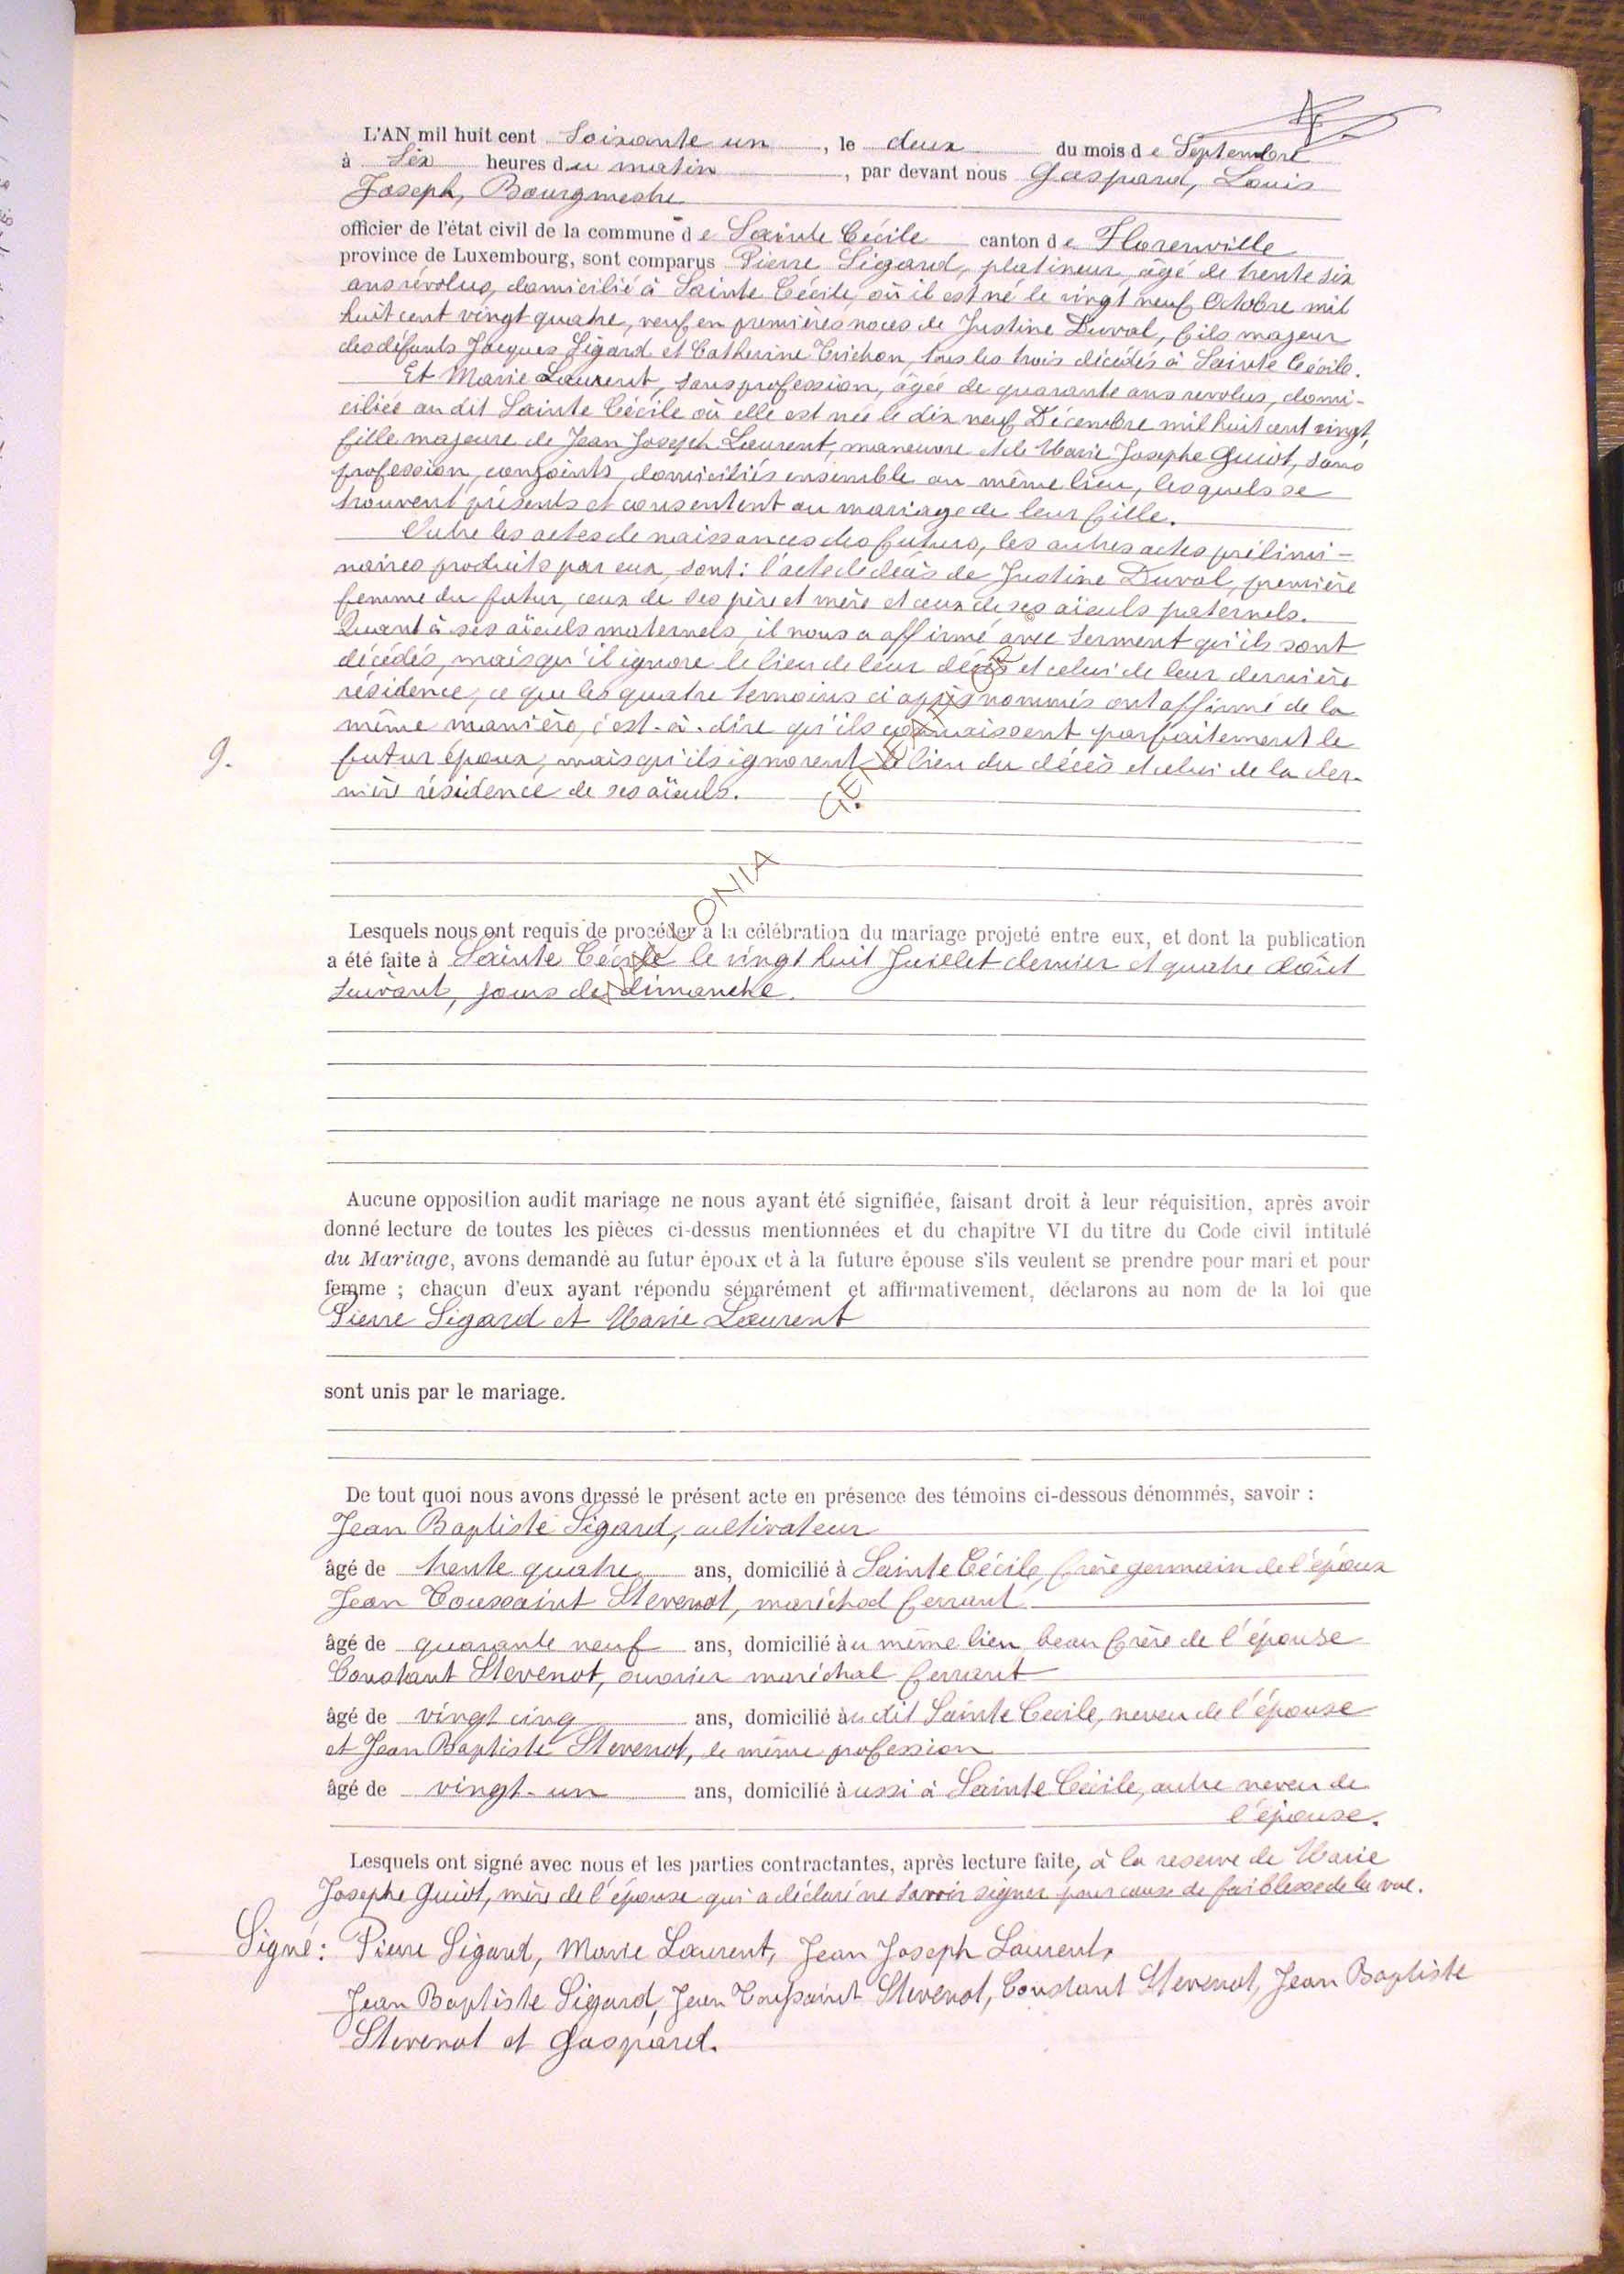 L'AN mil huit cent Soixante un, le deux du mois de Septembre
à Six heures du matin, par devant nous Gaspard, Louis
Joseph, Bourgmestre
officier de l'état civil de la commune de Sainte Cécile canton de Florenville
province de Luxembourg, sont comparus Pierre Sigard, platineur, âgé de trente six
ans révolus, domicilié à Sainte Cécile, où il est né le vingt neuf Octobre mil
huit cent vingt quatre, veuf en premières noces de Justine Duval, fils majeur
des défunts Jacques Sigard et Catherine Trichon, tous les trois décédés à Sainte Cécile.
Et Marie Laurent, sans profession, âgée de quarante ans revolus, domi-
ciliée au dit Sainte Cécile où elle est née le dix neuf Décembre mil huit cent vingt,
fille majeure de Jean Joseph Laurent, maneuvre et de Marie Josephe Guiot, sans
profession, conjoints, domiciliés ensemble au même lieu, lesquels se
trouvent présents et consentent au mariage de leur fille.
Outre les actes de naissances des futurs, les autres actes prélimi-
naires produits par eux, sont: l'acte de décès de Justine Duval, première
femme du futur, ceux de ses père et mère et ceux de ses aïeuls paternels.
Quant à ses aïeuls maternels, il nous a affirmé avec serment qu'ils sont
décédés, mais qu'il ignore le lieu de leur décès et celui de leur dernière
résidence, ce que les quatre temoins ci après nommés ont affirmé de la
même manière, c'est-à-dire qu'ils connaissent parfaitement le
9. futur époux, mais qu'ils ignorent le lieu du décès et celui de la der-
nière résidence de ses aïeuls.
Lesquels nous ont requis de procéder à la célébration du mariage projeté entre eux, et dont la publication
a été faite à Sainte Cécile le vingt huit Juillet dernier et quatre Août
suivant, jours de dimanche.
Aucune opposition audit mariage ne nous ayant été signifiée, faisant droit à leur réquisition, après avoir
donné lecture de toutes les pièces ci-dessus mentionnées et du chapitre VI du titre du Code civil intitulé
du Mariage, avons demandé au futur époux et à la future épouse s'ils veulent se prendre pour mari et pour
femme ; chacun d'eux ayant répondu séparément et affirmativement, déclarons au nom de la loi que
Pierre Sigard et Marie Laurent
sont unis par le mariage.
De tout quoi nous avons dressé le présent acte en présence des témoins ci-dessous dénommés, savoir :
Jean Baptiste Sigard, cultivateur
âgé de trente quatre ans, domicilié à Sainte Cécile, frère germain de l'époux
Jean Toussaint Stevenot, maréchal ferrant
âgé de quarante neuf ans, domicilié au même lieu, beau frère de l'épouse
Constant Stevenot, ouvrier maréchal ferrant
âgé de vingt cinq ans, domicilié au dit Sainte Cecile, neveu de l'épouse
et Jean Baptiste Stevenot, de même profession
âgé de vingt-un ans, domicilié aussi à Sainte Cécile, autre neveu de
l'épouse.
Lesquels ont signé avec nous et les parties contractantes, après lecture faite, à la reserve de Marie
Josephe Guiot, mère de l'épouse qui a déclaré ne savoir signer pour cause de faiblesse de la vue.
Signé: Pierre Sigard, Marie Laurent, Jean Joseph Laurent,
Jean Baptiste Sigard, Jean Toussaint Stevenot, Constant Stevenot, Jean Baptiste
Stevenot et Gaspard.